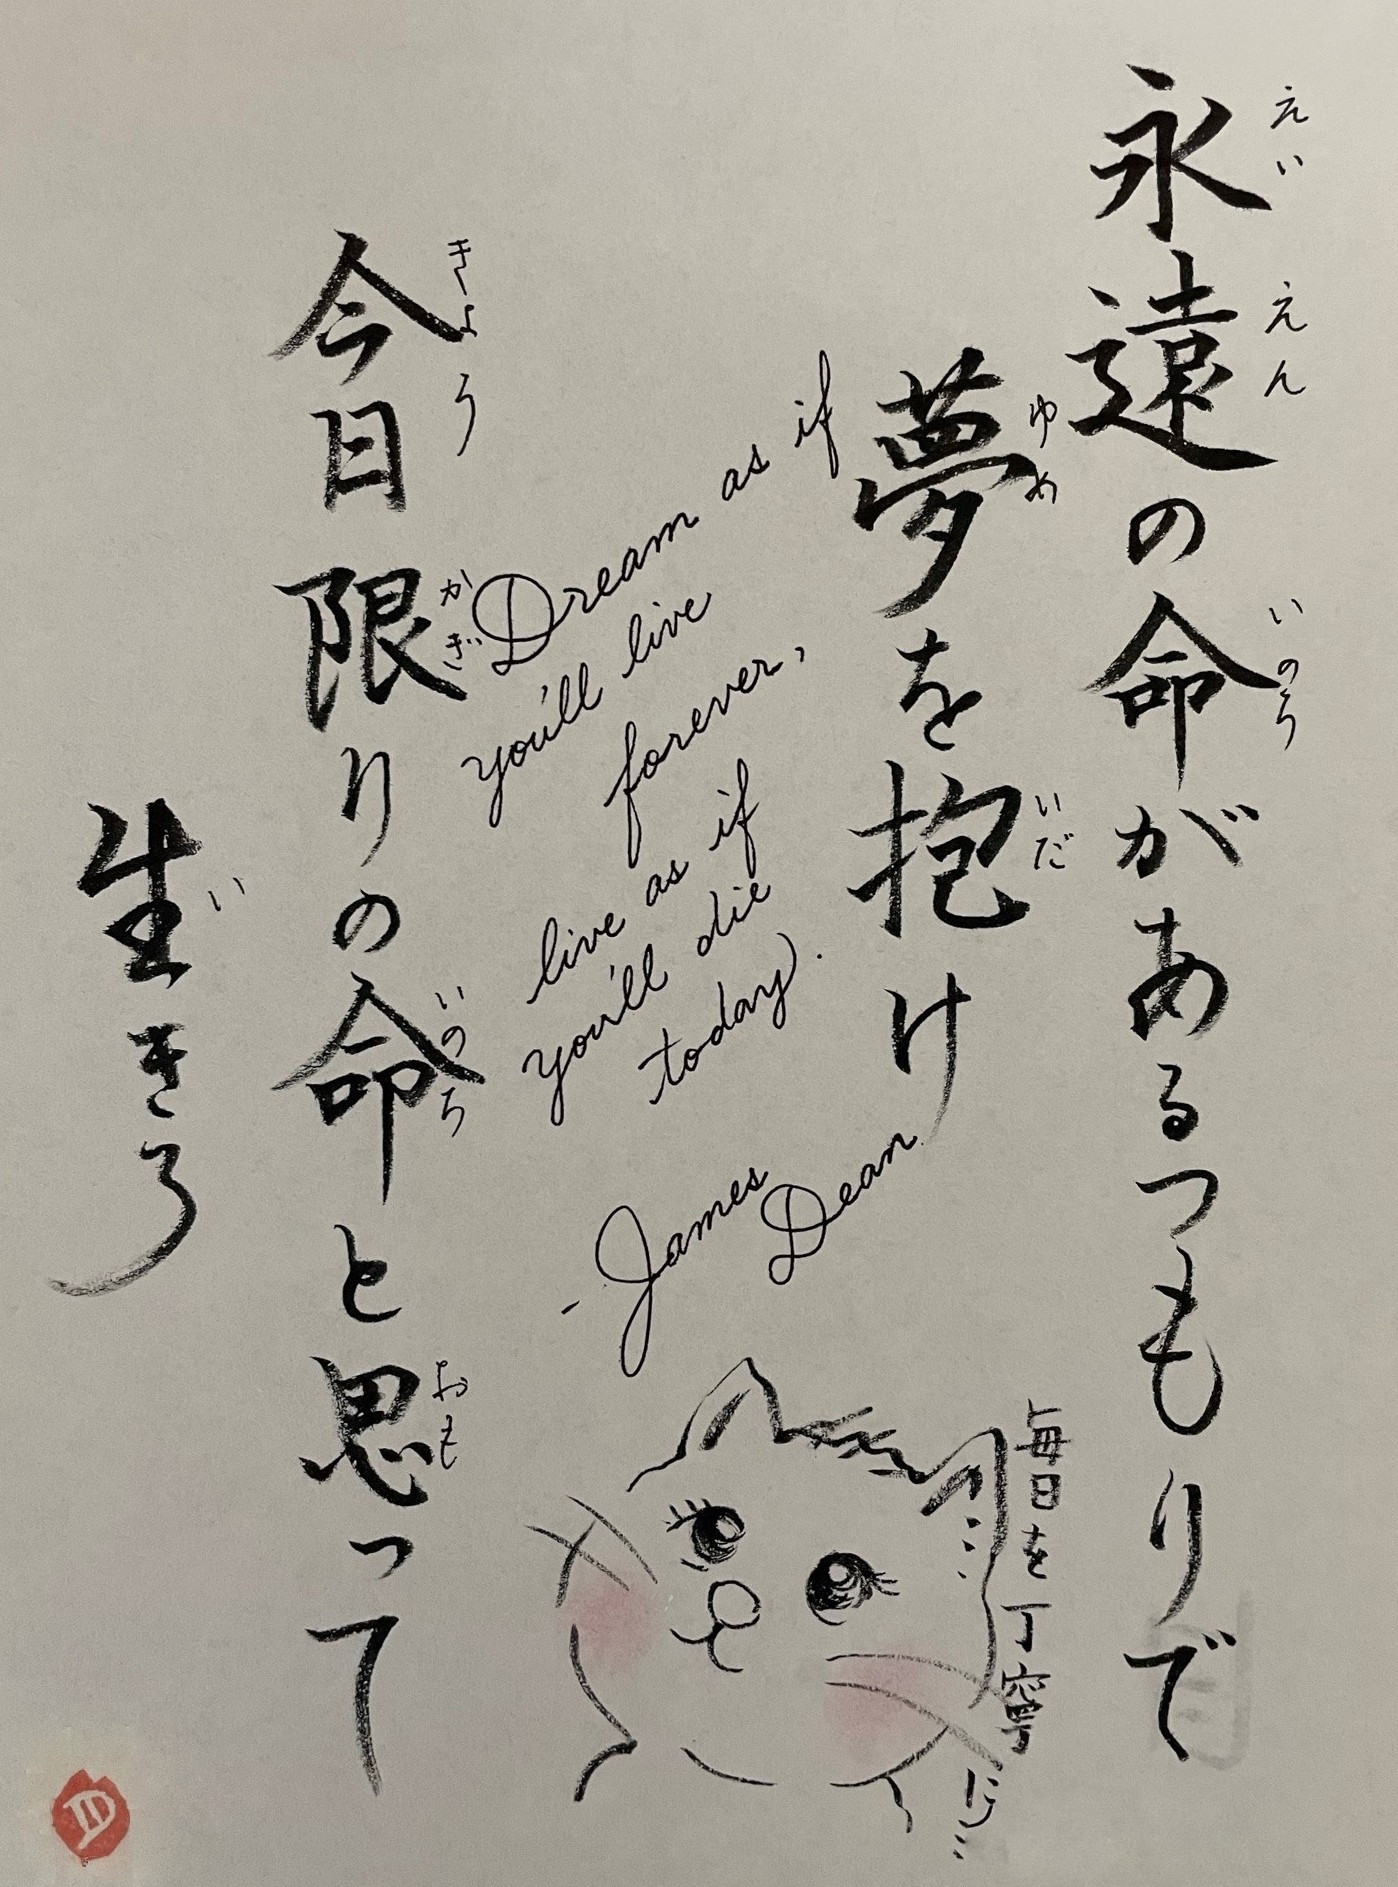 永遠の命があるつもりで
えいえん
いのち
夢を抱け
ゆめ
いだ
Dream as if
you'll live
forever,
live as if
you'll die
today.
- James
Dean
今日限りの命と思って
きょう
かぎ
いのち
おも
生きろ
い
毎日を丁寧に…